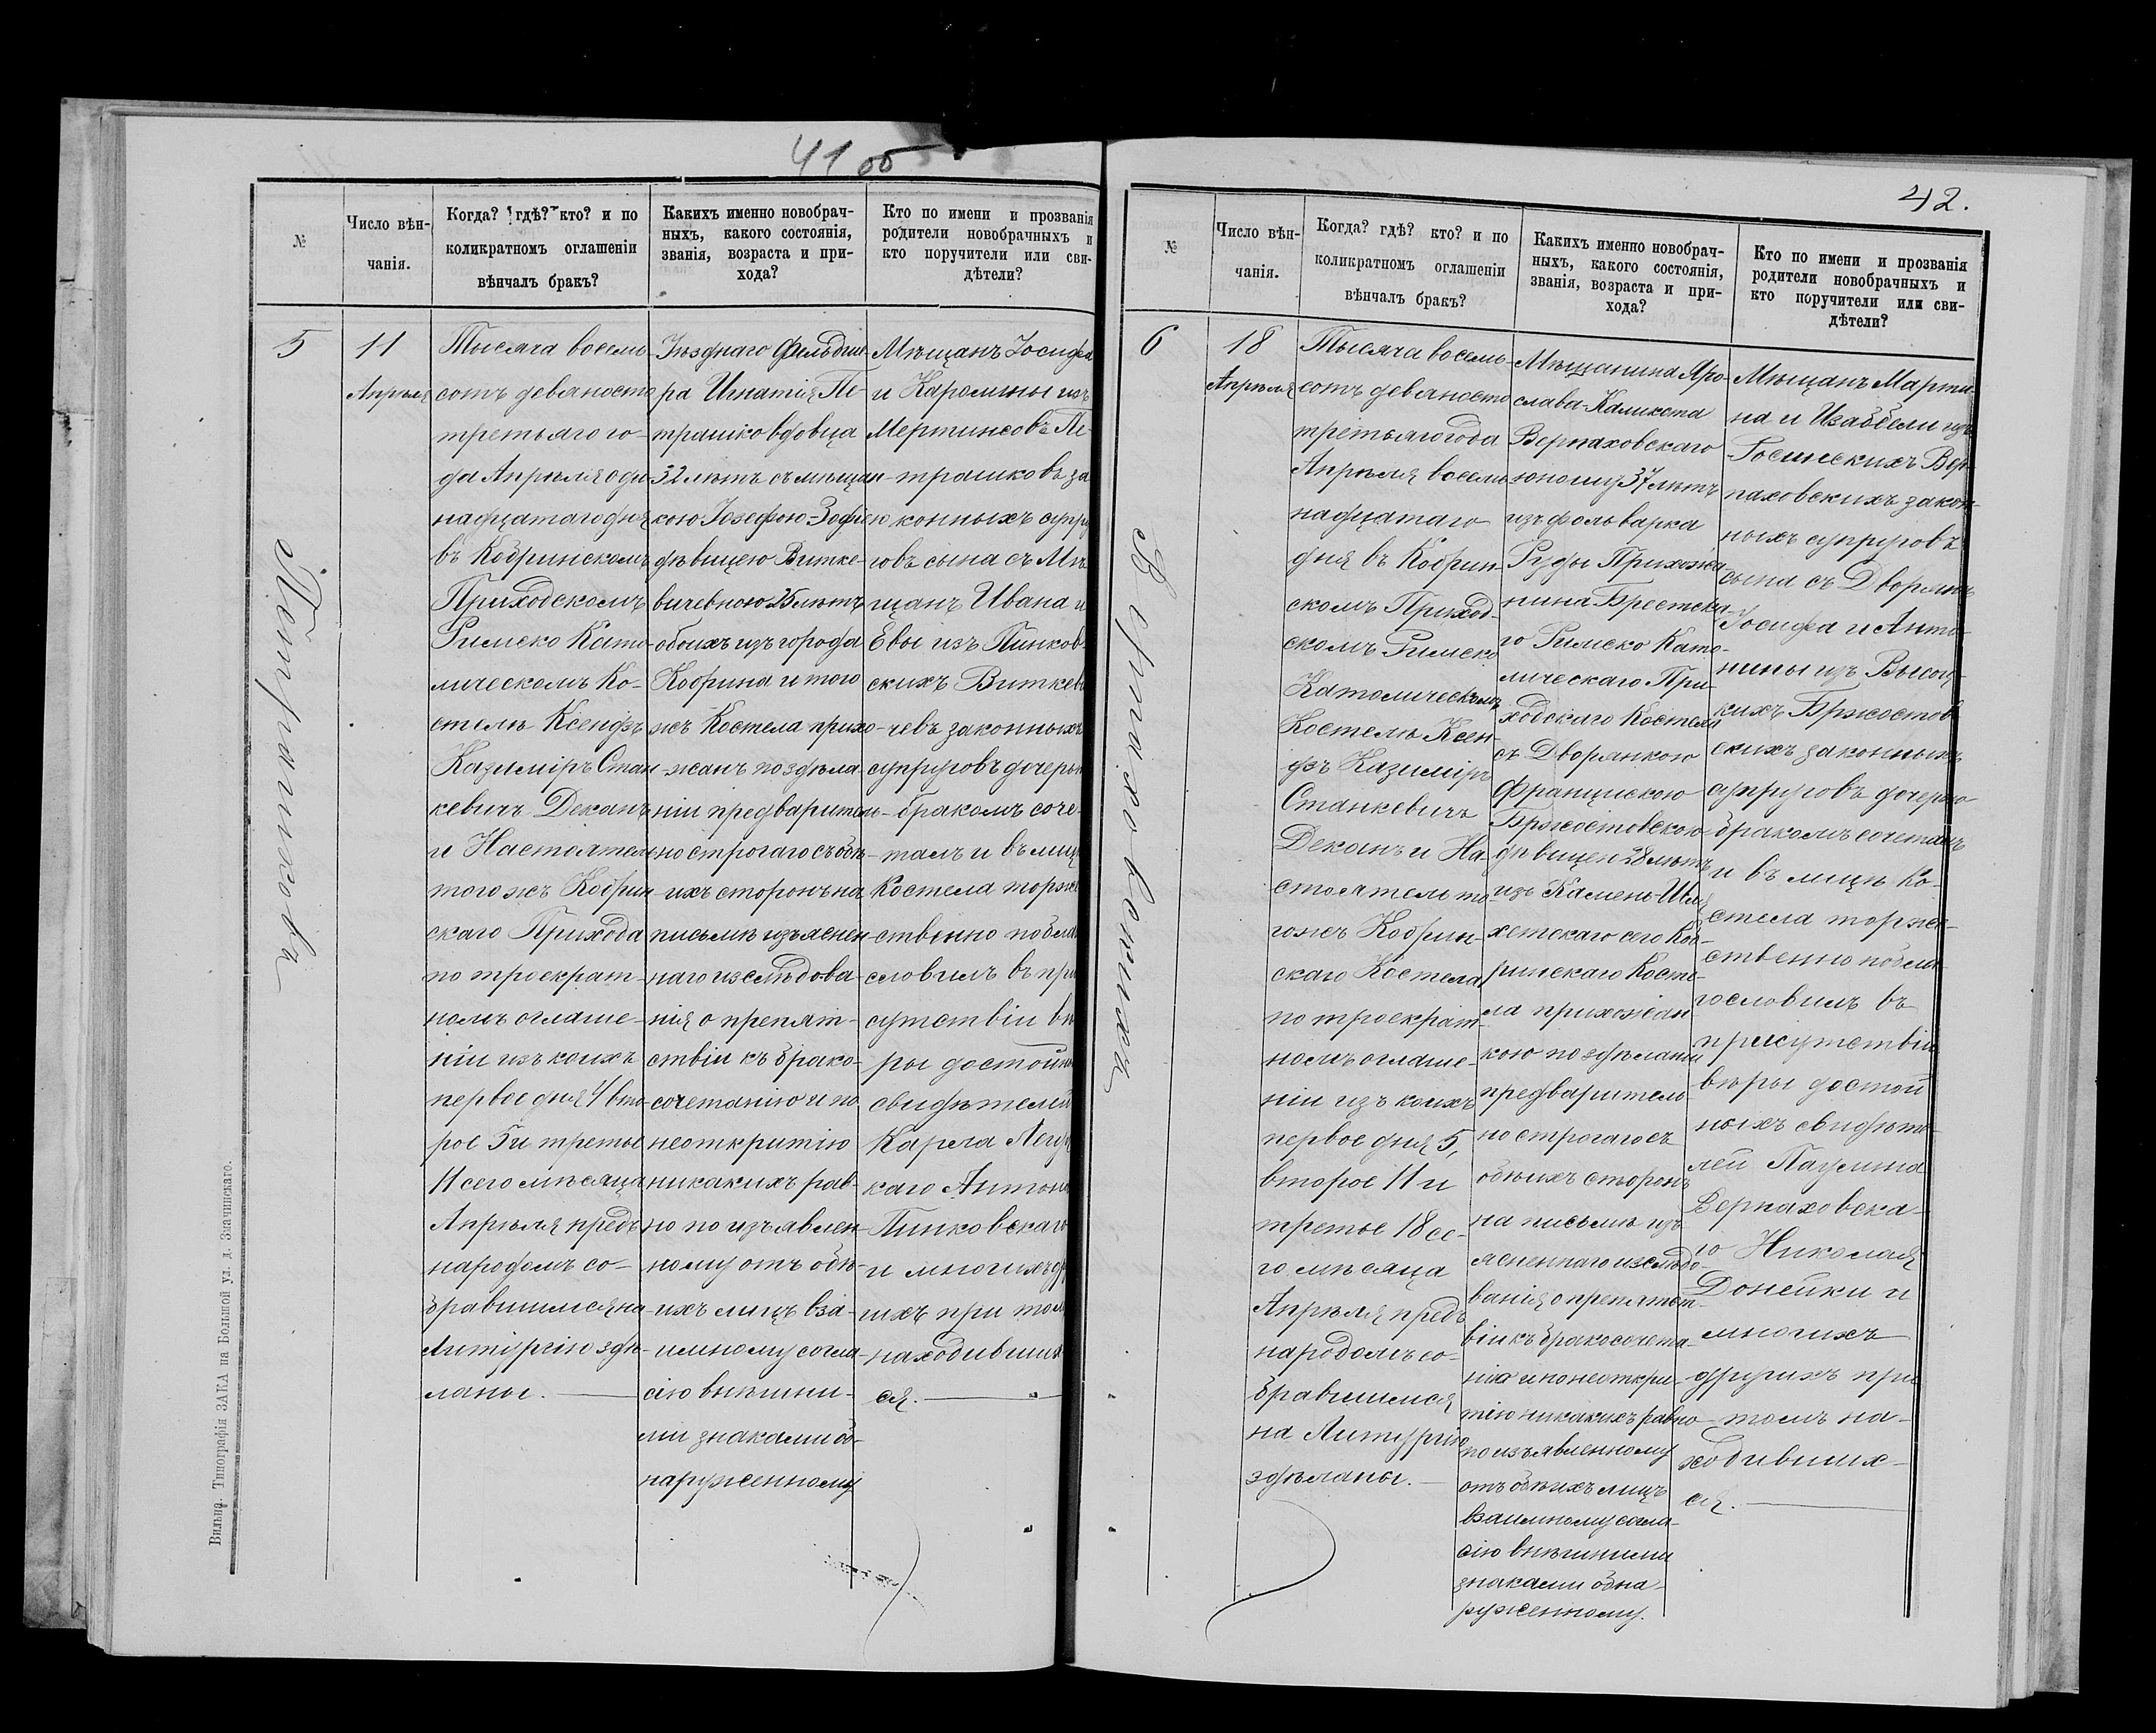 41 об
№
Число вѣн-
чанія.
Когда? гдѣ? кто? и по
коликратномъ оглашеніи
вѣнчалъ бракъ?
Какихъ именно новобрач-
ныхъ, какого состоянія,
званія, возраста и при-
хода?
Кто по имени и прозванія
родители новобрачныхъ и
кто поручители или сви-
дѣтели?
5
Петрашковъ
11
Апрѣля
Тысяча восемь-
сотъ девяносто
третьяго го-
да Апрѣля оди-
надцатаго дня
въ Кобринскомъ
Приходскомъ
Римско Като-
лическомъ Ко-
стелѣ Ксендзъ
Казиміръ Стан-
кевичъ Деканъ
и Настоятель
того жъ Кобрин
скаго Прихода
по троекрат-
номъ оглаше-
ніи изъ коихъ
первое дня 4 вто-
рое 5 и третье
11 сего мѣсяца
Апрѣля предъ
народомъ со-
бравшимся на
Литургію здѣ-
ланы.
Уѣзднаго Фельдше-
ра Игнатія Пе-
трашко вдовца
32 лѣтъ съ мѣщан-
кою Іозефою-Зофiею
дѣвицею Витке-
вичевною 25 лѣтъ
обоихъ изъ города
Кобрина и того
жъ Костела прихо-
жанъ по здѣла-
ніи предваритель-
но строгаго съ обѣ-
ихъ сторонъ на
письмѣ изъяснен-
наго изслѣдова-
нія о препят-
ствіи къ брако-
сочетанію и по
неоткритію
никакихъ рав-
но по изъявлен-
ному отъ обѣ-
ихъ лицъ вза-
имному согла-
сію внѣшни-
ми знаками об-
наруженному
Мѣщанъ Іосифа
и Каролины изъ
Мертинсовъ Пе-
трашковъ за
конныхъ супру
говъ сына съ Мѣ
щанъ Ивана и
Евы изъ Пинков-
скихъ Виткеви
чевъ законныхъ
супруговъ дочерью
бракомъ соче-
талъ и въ лицѣ
Костела торже
ственно побла
словилъ въ при
сутствіи вѣ
ры достойны
свидѣтелей
Карла
каго Антона
Пинковскаго
и многихъ др
ихъ при том
находивших
ся.
Вильна. Типографія ЗАКА на Большой ул. д. Змачинскаго.
42.
№
Число вѣн-
чанія.
Когда? гдѣ? кто? и по
коликратномъ оглашеніи
вѣнчалъ бракъ?
Какихъ именно новобрач-
ныхъ, какого состоянія,
званія, возраста и при-
хода?
Кто по имени и прозванія
родители новобрачныхъ и
кто поручители или сви-
дѣтели?
6
Верпаховскихъ
18
Апрѣля
Тысяча восемь-
сотъ девяносто
третьяго года
Апрѣля восемь
надцатаго
дня въ Кобрин-
скомъ Приход-
скомъ Римско
Католическомъ
Костелѣ Ксен-
дзъ Казиміръ
Станкевичъ
Деканъ и На-
стоятель то
гожъ Кобрин-
скаго Костела
по троекрат-
номъ оглаше-
ніи изъ коихъ
первое дня 5,
второе 11 и
третье 18 се-
го мѣсяца
Апрѣля предъ
народомъ со-
бравшимся
на Литургію
здѣланы.
Мѣщанина Яро-
слава-Каликста
Верпаховскаго
юношу 37 лѣтъ
изъ фольварка
Руды Прихожа-
нина Брестска-
го Римско Като-
лическаго При-
ходскаго Костела
съ Дворянкою
Францискою
Бржостовскою
дѣвицею 28 лѣтъ
изъ Камень-Шля
хетскаго сего Коб-
ринскаго Косте-
ла прихожан
кою по здѣланіи
предваритель-
но строгаго съ
обѣихъ сторонъ
на письмѣ изъ
ясненнаго изслѣдо-
ванія о препятст-
віи къ бракосочета-
нію и по неоткри-
тію никакихъ равно
по изъявленному
отъ обѣихъ лицъ
взаимному согла-
сію внѣшними
знаками обна-
руженному.
Мѣщанъ Марти
на и Изабели изъ
Госинскихъ Вер-
паховскихъ закон-
ныхъ супруговъ
сына съ Дворянъ
Іосифа и Анто-
нины изъ Высоц-
кихъ Бржостов
скихъ законныхъ
супруговъ дочерью
бракомъ сочеталъ
и въ лицѣ Ко-
стела торже-
ственно побла-
гословилъ въ
присутствіи
вѣры достой
ныхъ свидѣте-
лей Паулина
Верпаховска-
го Николая
Донейки и
многихъ
другихъ при
томъ на-
ходивших-
ся.